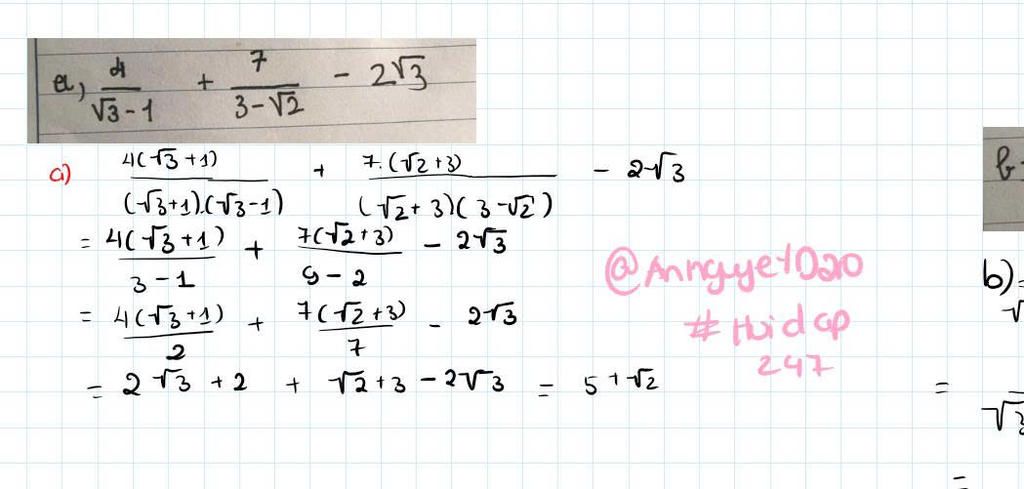 a, 4/(√3-1) + 7/(3-√2) - 2√3
a) 4(√3+1)/((√3+1).(√3-1)) + 7.(√2+3)/((√2+3)(3-√2)) - 2√3
= 4(√3+1)/(3-1) + 7(√2+3)/(9-2) - 2√3
= 4(√3+1)/2 + 7(√2+3)/7 - 2√3
= 2√3 + 2 + √2+3 - 2√3 = 5+√2
@Annguyet1020
#Hoidap
247
b)
=
=